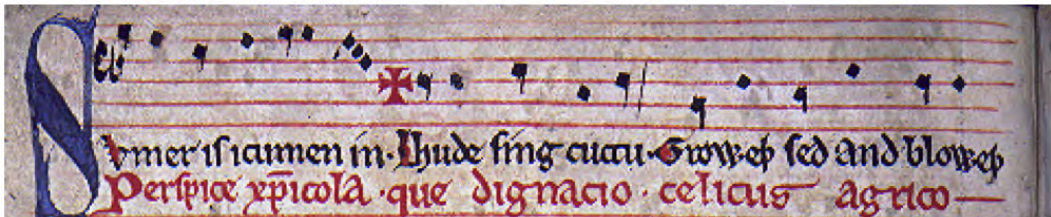 Svmer is icumen in · Lhude sing cuccu · Groweþ sed and bloweþ
Perspice xp̄icola · que dignacio · celicus agrico—